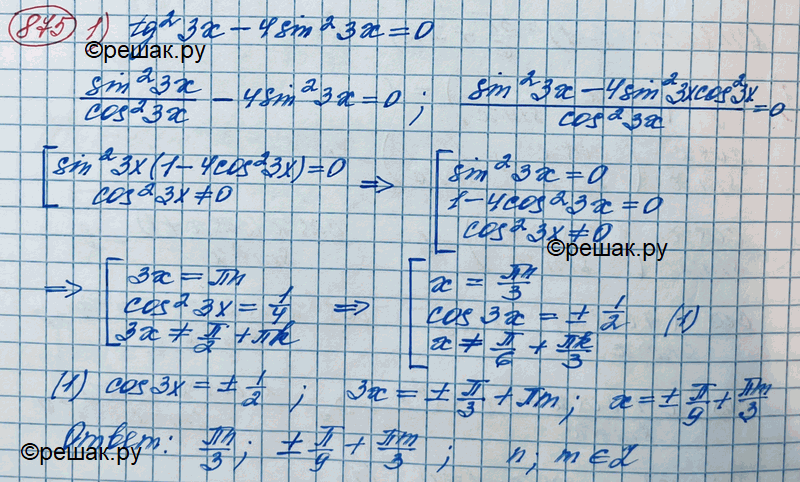 875 1) tg² 3x − 4sin² 3x = 0
©решак.ру
sin² 3x / cos² 3x − 4sin² 3x = 0 ; (sin² 3x − 4sin² 3x cos² 3x) / cos² 3x = 0
©решак.ру
[ sin² 3x (1 − 4cos² 3x) = 0 ⇒ [ sin² 3x = 0
cos² 3x ≠ 0 1 − 4cos² 3x = 0
cos² 3x ≠ 0
©решак.ру
⇒ [ 3x = πn ⇒ [ x = πn/3
cos² 3x = 1/4 cos 3x = ± 1/2 (1)
3x ≠ π/2 + πk x ≠ π/6 + πk/3
(1) cos 3x = ± 1/2 ; 3x = ± π/3 + πm ; x = ± π/9 + πm/3
Ответ: πn/3 ; ± π/9 + πm/3 ; n; m ∈ Z
©решак.ру
©решак.ру